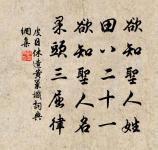 欲知聖人姓
田八二十一
欲知聖人名
果頭三屈律
皮日休造黃巢讖詞典
網集